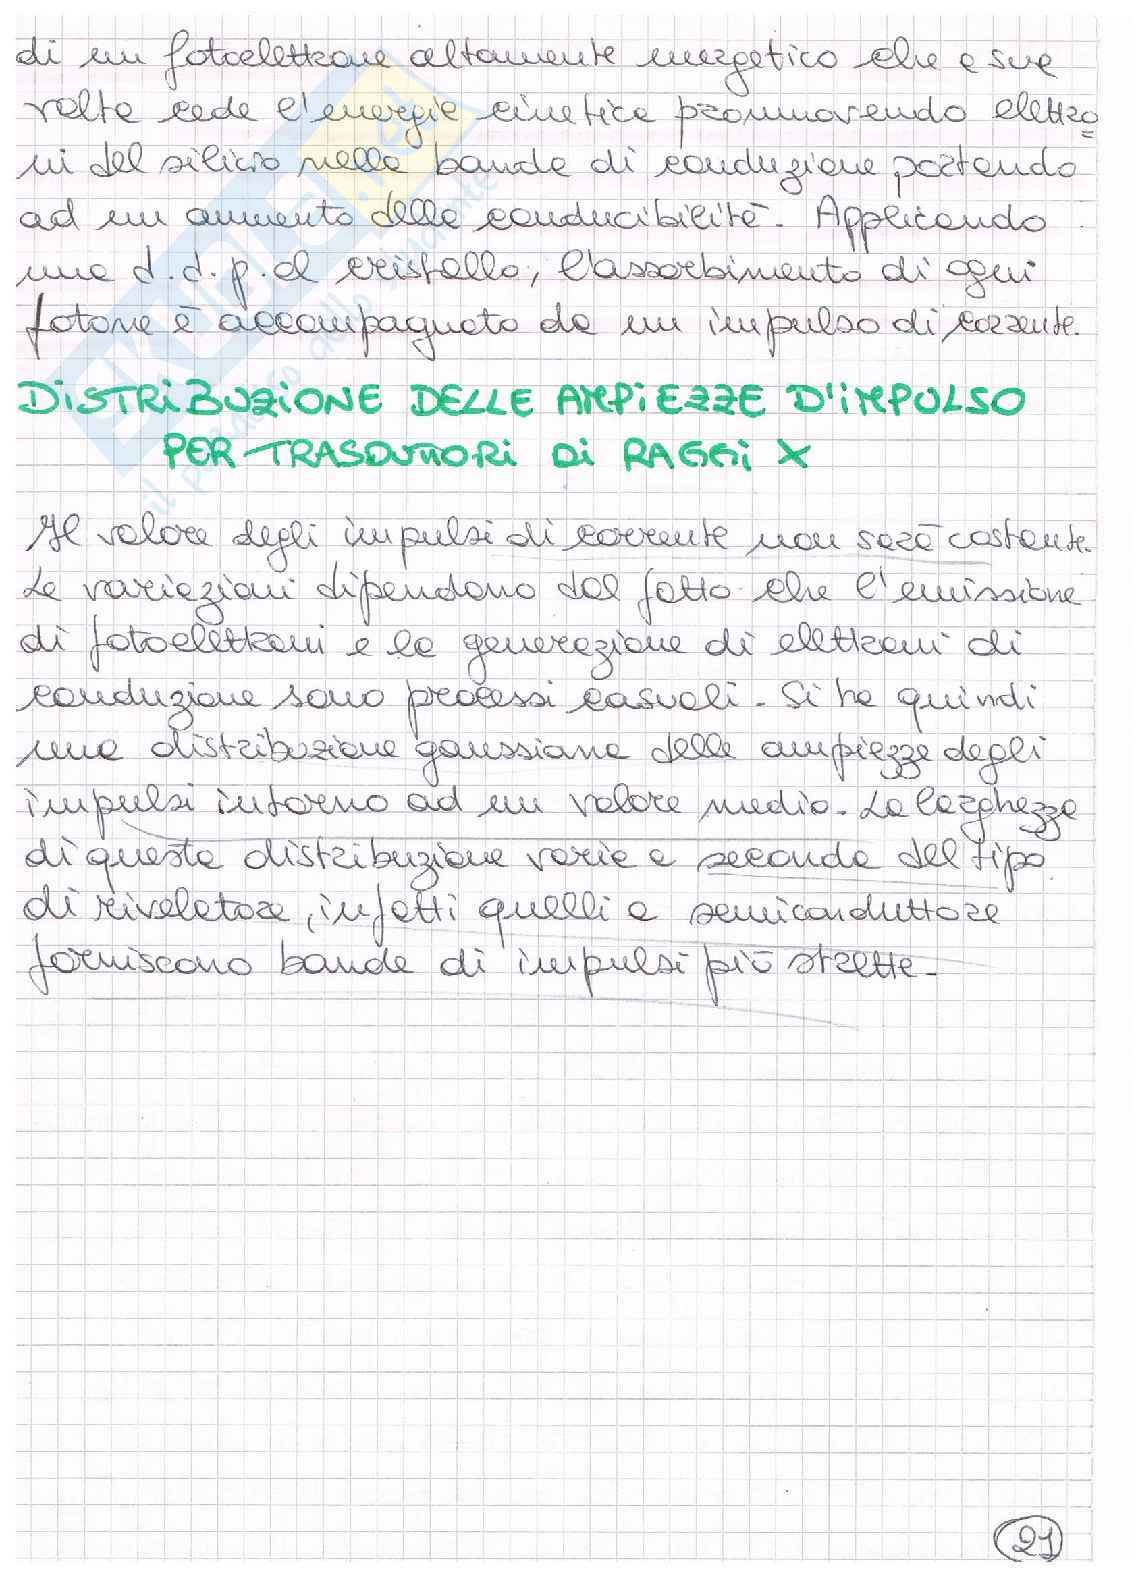 di un fotoelettrone altamente energetico che a sua
volta cede l'energia cinetica promuovendo elettro
ni del silicio nella banda di conduzione portando
ad un aumento della conducibilità. Applicando
una d.d.p. al cristallo, l'assorbimento di ogni
fotone è accompagnato da un impulso di corrente.
DISTRIBUZIONE DELLE AMPIEZZE D'IMPULSO
PER TRASDUTTORI DI RAGGI X
Il valore degli impulsi di corrente non sarà costante.
Le variazioni dipendono dal fatto che l'emissione
di fotoelettroni e la generazione di elettroni di
conduzione sono processi casuali. Si ha quindi
una distribuzione gaussiana delle ampiezze degli
impulsi intorno ad un valore medio. La larghezza
di questa distribuzione varia a seconda del tipo
di rivelatore, infatti quelli a semiconduttore
forniscono bande di impulsi più strette.
21
SKUOLA.net
il paradiso dello studente